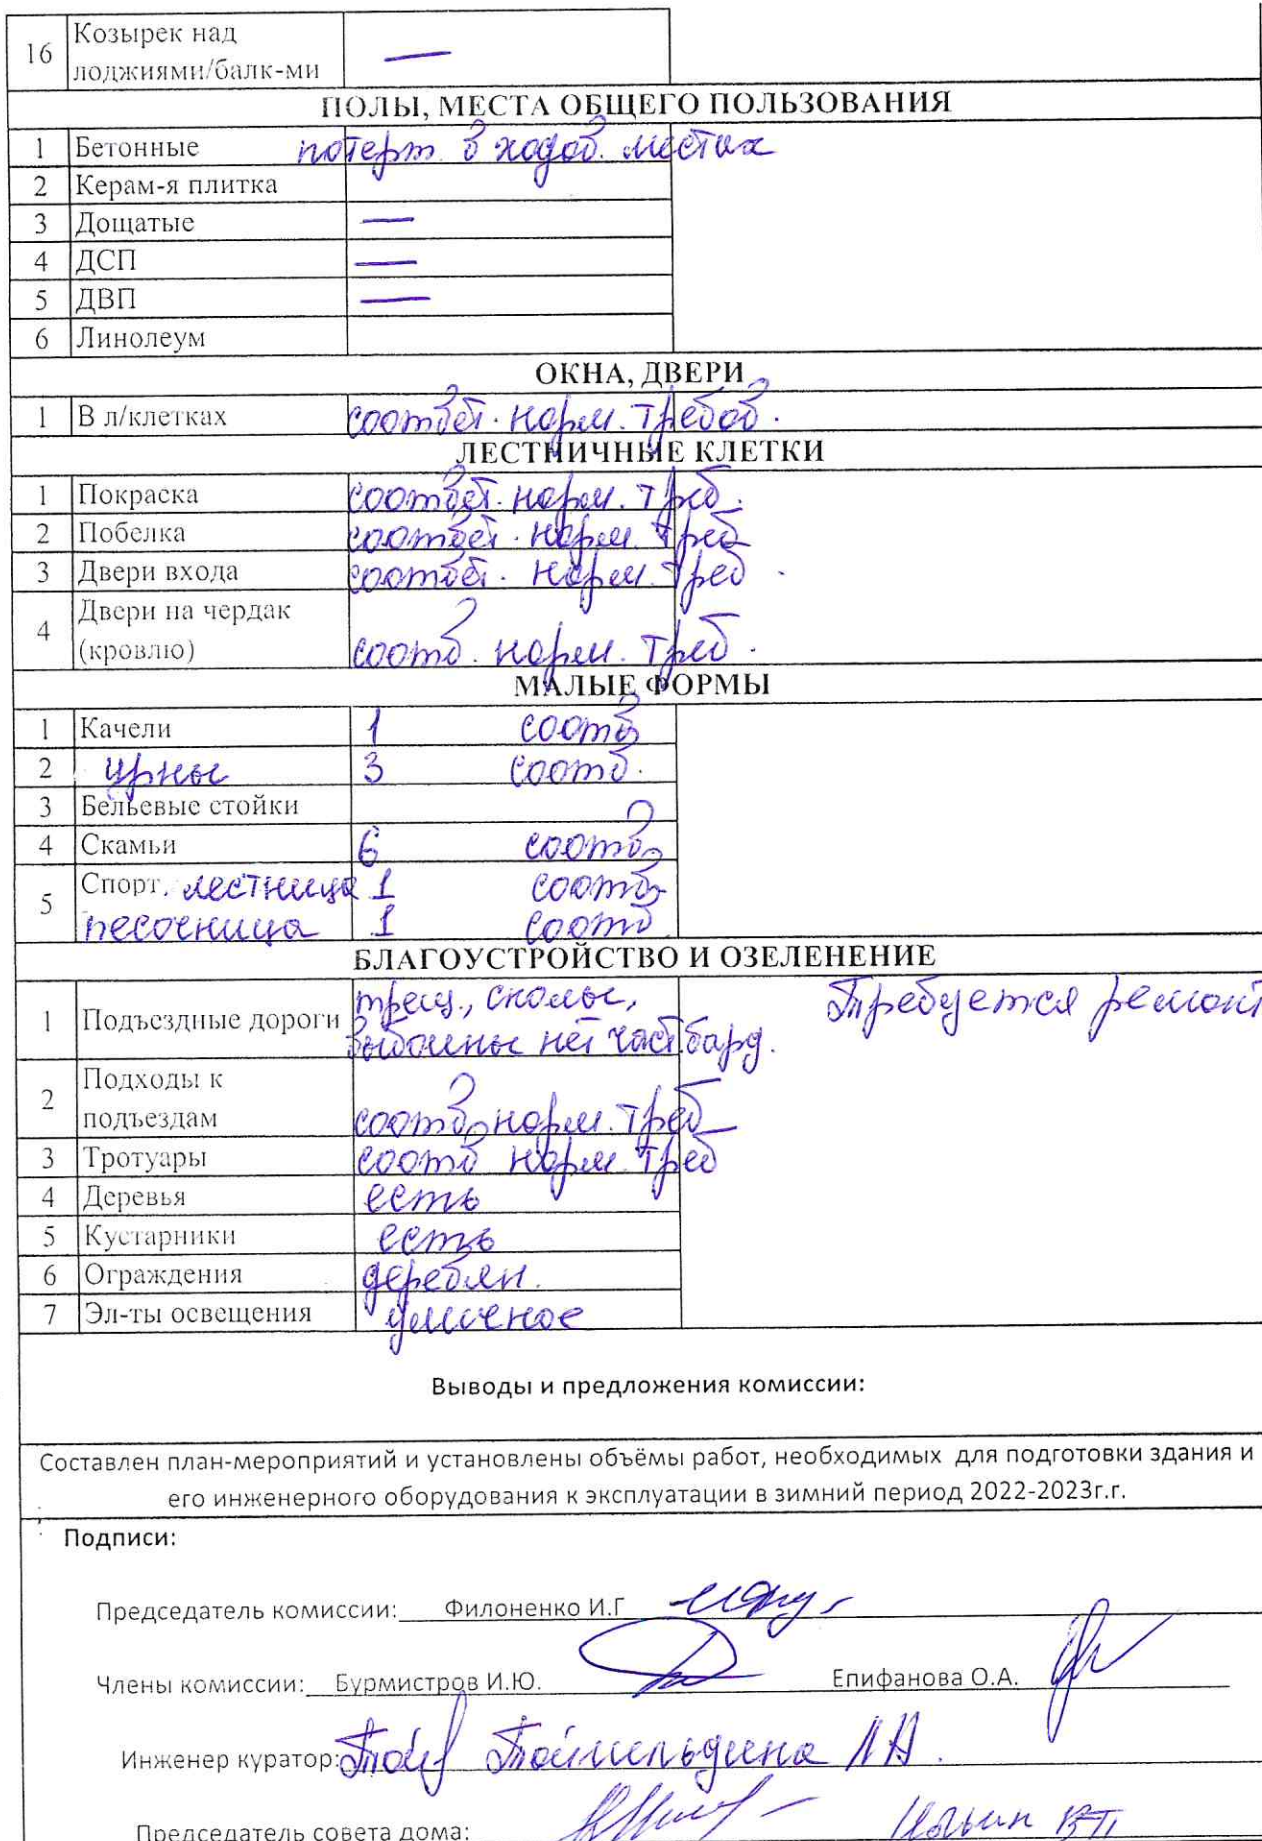 16 Козырек над
лоджиями/балк-ми —
ПОЛЫ, МЕСТА ОБЩЕГО ПОЛЬЗОВАНИЯ
1 Бетонные потерт. в ходов. местах
2 Керам-я плитка
3 Дощатые —
4 ДСП —
5 ДВП —
6 Линолеум
ОКНА, ДВЕРИ
1 В л/клетках соответ. норм. требов.
ЛЕСТНИЧНЫЕ КЛЕТКИ
1 Покраска соответ. норм. треб.
2 Побелка соответ. норм. треб
3 Двери входа соответ. норм. треб.
4 Двери на чердак
(кровлю) соотв. норм. треб.
МАЛЫЕ ФОРМЫ
1 Качели 1 соотв
2 урны 3 соотв.
3 Бельевые стойки
4 Скамьи 6 соотв
5 Спорт. лестница 1 соотв
песочница 1 соотв
БЛАГОУСТРОЙСТВО И ОЗЕЛЕНЕНИЕ
1 Подъездные дороги трещ., сколы, Требуется ремонт
выбоины нет част. борд.
2 Подходы к
подъездам соотв. норм. треб
3 Тротуары соотв норм. треб
4 Деревья есть
5 Кустарники есть
6 Ограждения деревян.
7 Эл-ты освещения уличное
Выводы и предложения комиссии:
Составлен план-мероприятий и установлены объёмы работ, необходимых для подготовки здания и
его инженерного оборудования к эксплуатации в зимний период 2022-2023г.г.
Подписи:
Председатель комиссии: Филоненко И.Г
Члены комиссии: Бурмистров И.Ю. Епифанова О.А.
Инженер куратор: Тойгильдина
Председатель совета дома: